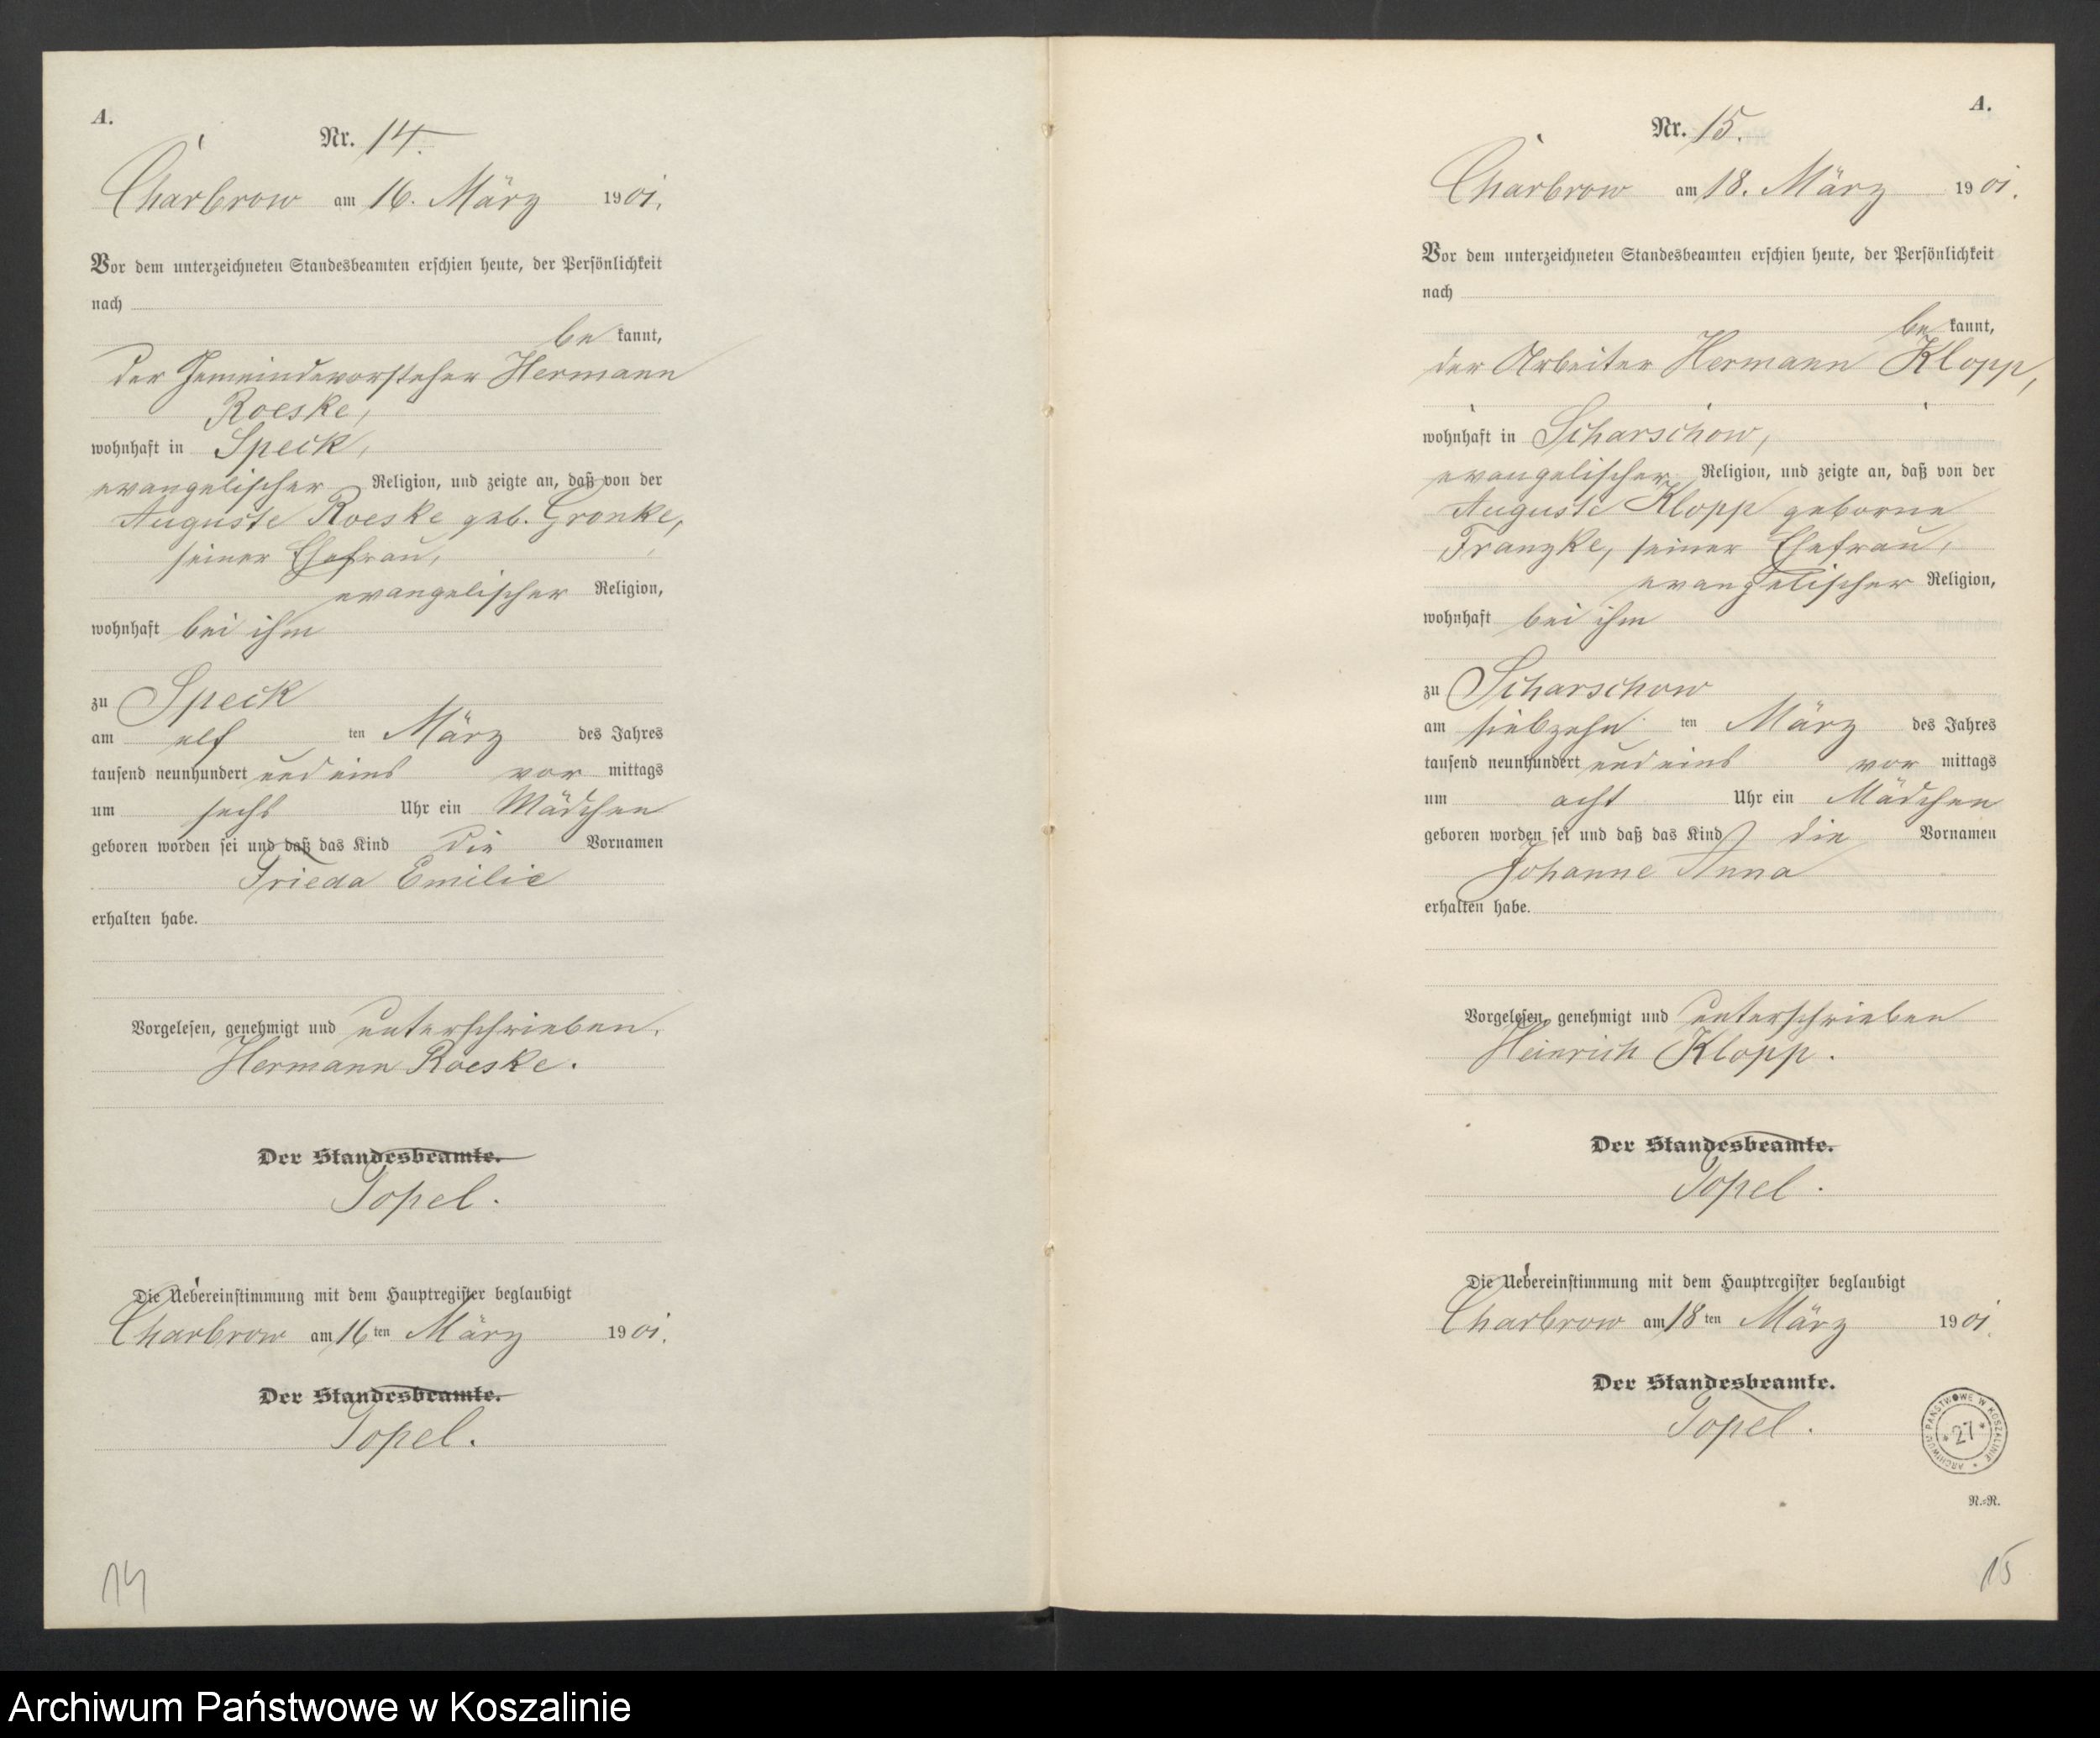 A.
Nr. 14.
Charbrow am 16. März 1901.
Vor dem unterzeichneten Standesbeamten erschien heute, der Persönlichkeit
nach
be kannt,
der Gemeindevorsteher Hermann
Roeske,
wohnhaft in Speck,
evangelischer Religion, und zeigte an, daß von der
Auguste Roeske geb. Gronke,
seiner Ehefrau,
evangelischer Religion,
wohnhaft bei ihm
zu Speck
am elf ten März des Jahres
tausend neunhundert und eins vor mittags
um sechs Uhr ein Mädchen
geboren worden sei und daß das Kind die Vornamen
Frieda Emilie
erhalten habe.
Vorgelesen, genehmigt und unterschrieben.
Hermann Roeske.
Der Standesbeamte.
Topel.
Die Uebereinstimmung mit dem Hauptregister beglaubigt
Charbrow am 16 ten März 1901.
Der Standesbeamte.
Topel.
14
A.
Nr. 15.
Charbrow am 18. März 1901.
Vor dem unterzeichneten Standesbeamten erschien heute, der Persönlichkeit
nach
be kannt,
der Arbeiter Hermann Klopp,
wohnhaft in Scharschow,
evangelischer Religion, und zeigte an, daß von der
Auguste Klopp geborne
Franzke, seiner Ehefrau,
evangelischer Religion,
wohnhaft bei ihm
zu Scharschow
am siebzehn ten März des Jahres
tausend neunhundert und eins vor mittags
um acht Uhr ein Mädchen
geboren worden sei und daß das Kind die Vornamen
Johanne Anna
erhalten habe.
Vorgelesen, genehmigt und unterschrieben
Heinrich Klopp.
Der Standesbeamte.
Topel.
Die Uebereinstimmung mit dem Hauptregister beglaubigt
Charbrow am 18 ten März 1901.
Der Standesbeamte.
Topel.
ARCHIWUM PAŃSTWOWE W KOSZALINIE
* 27 *
N.=R.
15
Archiwum Państwowe w Koszalinie